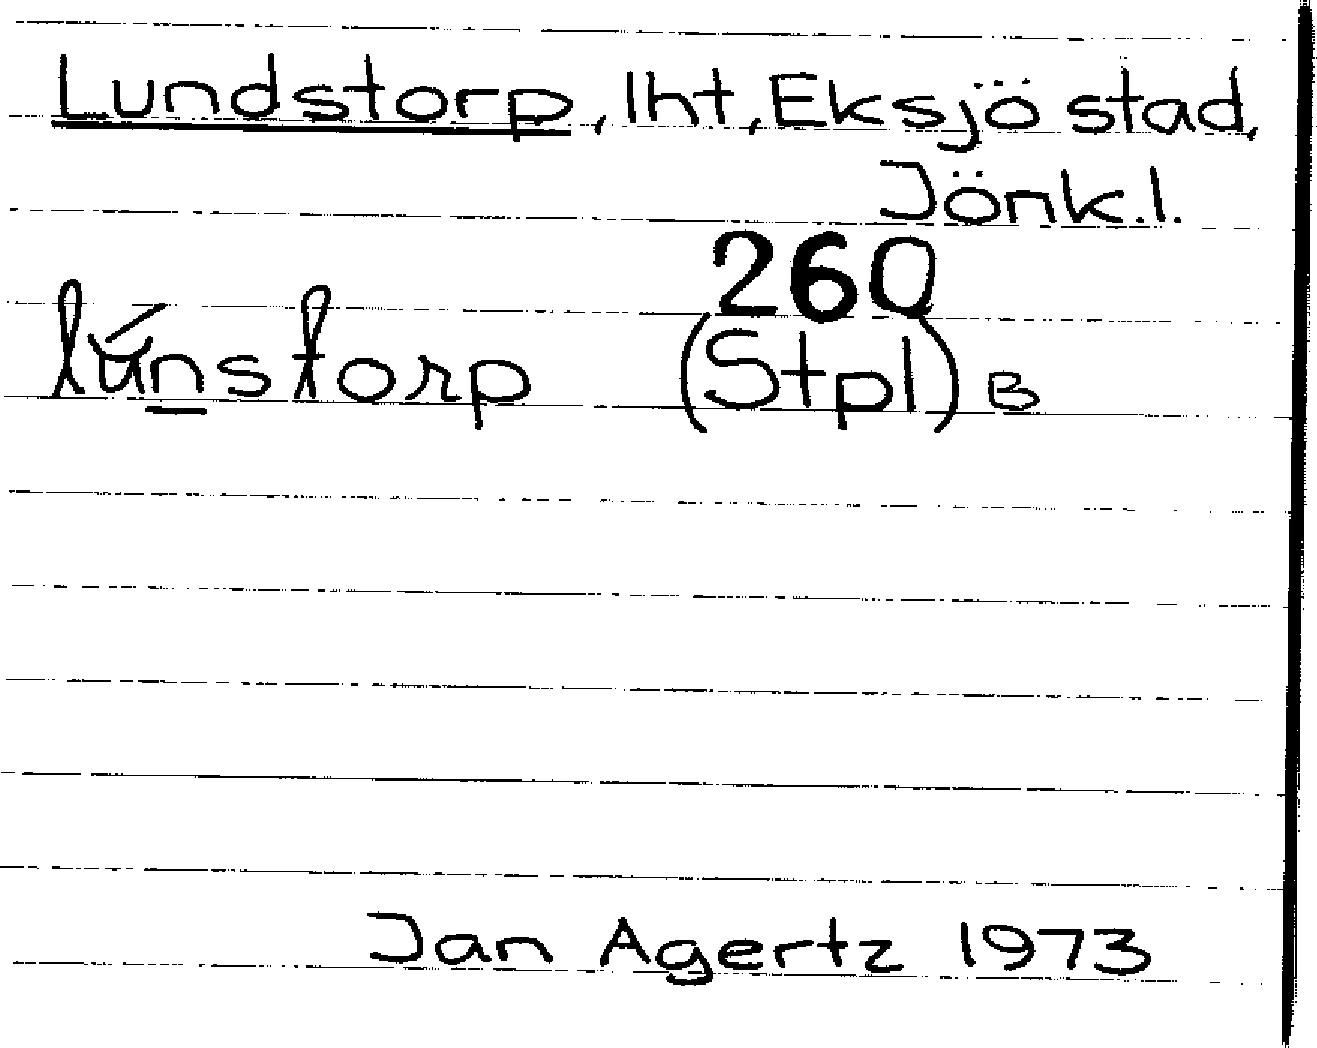 Lundstorp, lht, Eksjö stad,
Jönk.l.
260
lúnstorp (Stpl) B
Jan Agertz 1973